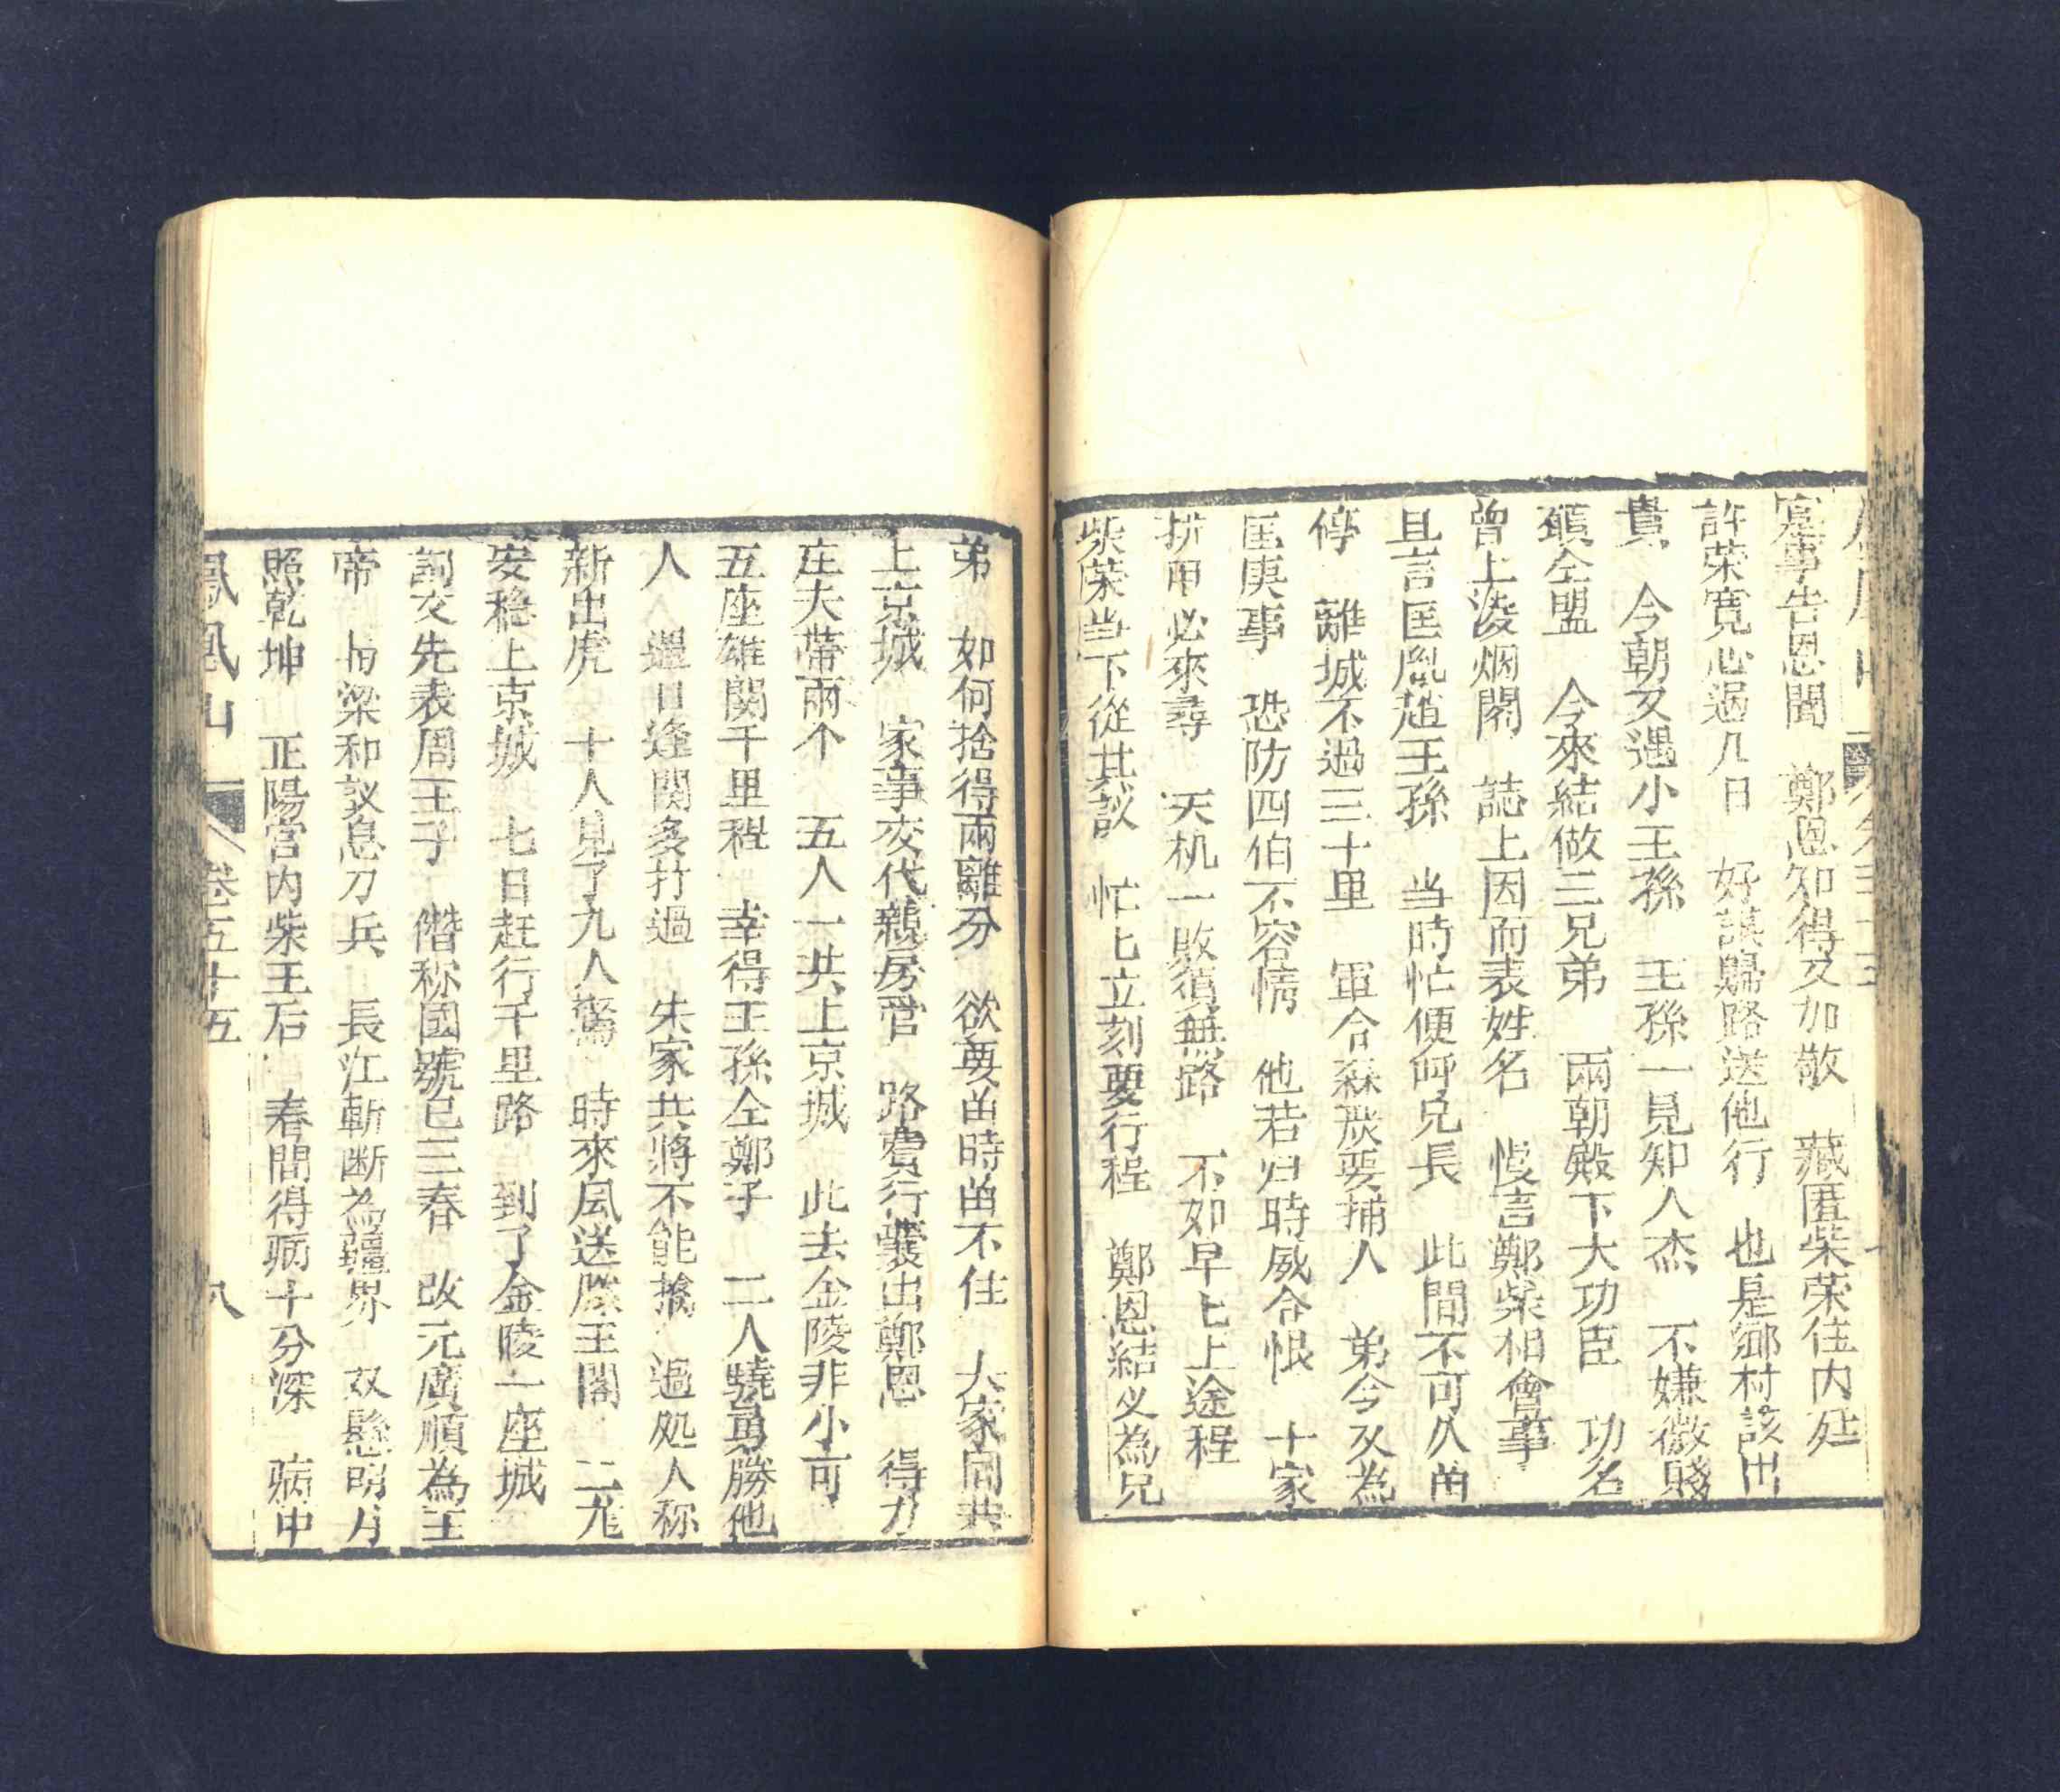 寔事告恩聞 鄭恩知得又加敬 藏匿柴荣住内廷
許荣寛心過几日 好謀歸路送他行 也是鄉村該出
貴 今朝又遇小王孫 王孫一見知人杰 不嫌微賤
願仝盟 今來結做三兄弟 兩朝殿下大功臣 功名
曾上凌烟閣 誌上因而表姓名 慢言鄭柴相會事
且言匡胤趙王孫 当時忙便呼兄長 此間不可久畄
停 離城不過三十里 軍令森严要捕人 弟今又為
匡庚事 恐防四伯不容情 他若归時威令恨 十家
抗甲必來尋 天机一敗須無路 不如早匕上途程
柴荣当下從其議 忙匕立刻要行程 鄭恩結义為兄
弟 如何捨得兩離分 欲要畄時畄不住 大家同共
上京城 家事交代親房管 路費行囊出鄭恩 得力
庄夫帶兩个 五人一共上京城 此去金陵非小可
五座雄関千里程 幸得王孫仝鄭子 二人驍勇勝他
人 還日逢関多打過 朱家共將不能擒 過処人称
新出虎 十人見了九人驚 時來風送滕王閣 二龙
安稳上京城 七日赶行千里路 到了金陵一座城
詞文先表周王子 僭称國號已三春 改元廣順為王
帝 与梁和議息刀兵 長江斬断為疆界 双懸明月
照乾坤 正陽宫内柴王后 春間得病十分深 病中
鳳凰山 卷五十五 八